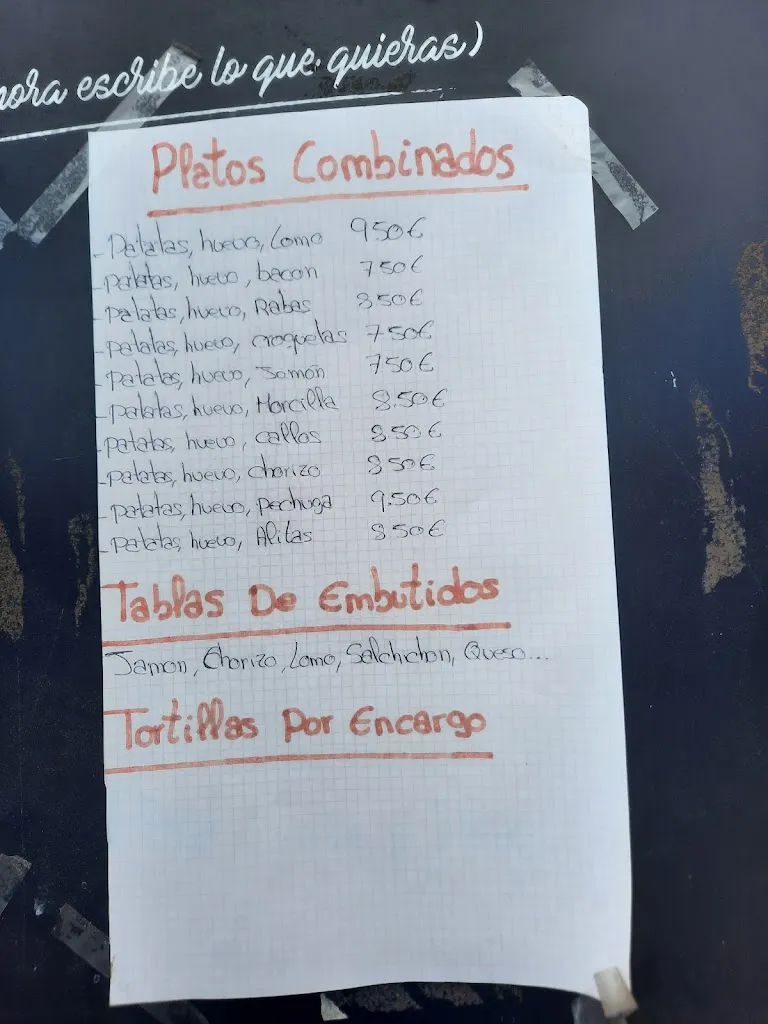 hora escribe lo que quieras)
Platos Combinados
- Patatas, huevo, Lomo 950€
- patatas, huevo, bacon 750€
- patatas, huevo, Rabas 850€
- patatas, huevo, croquetas 7.50€
- Patatas, huevo, Jamón 750€
- patatas, huevo, Morcilla 8.50€
- patatas, huevo, callos 850€
- patatas, huevo, chorizo 850€
- patatas, huevo, pechuga 9.50€
- patatas, huevo, Alitas 850€
Tablas De Embutidos
Jamon, Chorizo, Lomo, Salchichon, Queso...
Tortillas Por Encargo